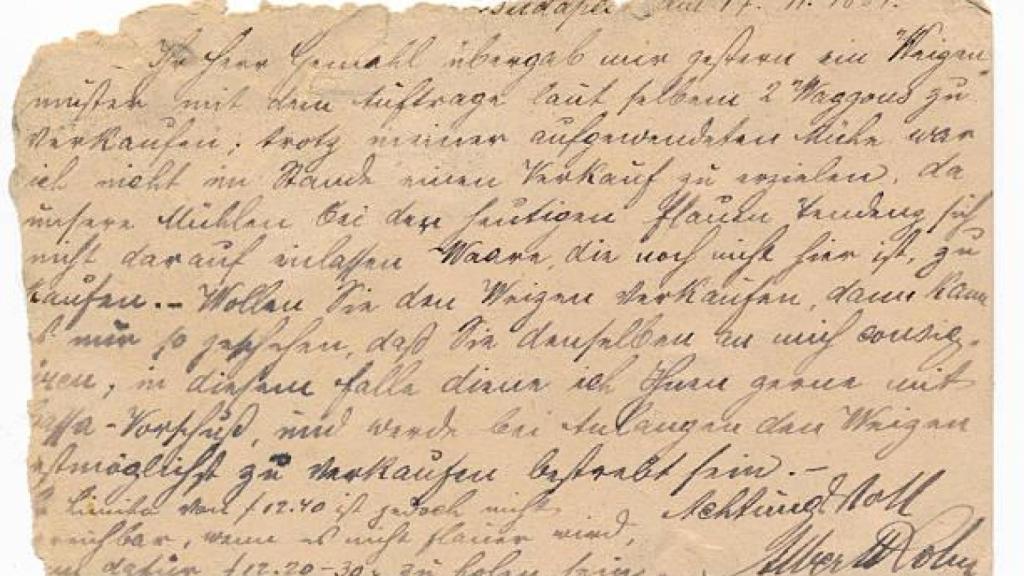 Budapest am 17. 11. 1881.
Ihr Herr Gemahl übergab mir gestern ein Weizen-
muster mit dem Auftrage laut selbem 2 Waggons zu
verkaufen; trotz meiner aufgewendeten Mühe war
ich nicht im Stande einen Verkauf zu erzielen, da
unsere Mühlen bei der heutigen flauen Tendenz sich
nicht darauf einlassen Waare, die noch nicht hier ist, zu
kaufen.- Wollen Sie den Weizen verkaufen, dann kann
nur so geschehen, daß Sie denselben an mich consig-
; in diesem Falle diene ich Ihnen gerne mit
assa-Vorschuß, und werde bei Anlangen den Weizen
estmöglichst zu verkaufen bestrebt sein.-
Limito von f 12.40 ist jedoch nicht
reichbar, wenn es nicht flauer wird,
dafür f 12.20-30 zu holen sein
Achtungsvoll
Albert Kohn